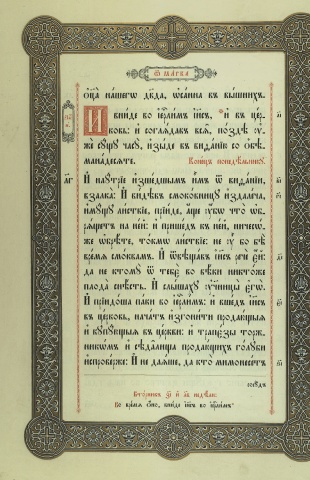 Ѿ МАРКА
ѻц҃а нашегѡ дв҃да, ѡсанна въ вышнихъ.
И вниде во іерⷭ҇лимъ іи҃съ, и въ цер-
ковь: и соглѧдавъ всѧ, поздѣ ᲂу-
же сꙋщꙋ часꙋ, изыде въ виѳанїю со ѻбѣ-
манадесѧте. Конецъ понедѣльникꙋ.
И наꙋтрїе изшедшымъ имъ ѿ виѳанїи,
взалка: И видѣвъ смоковницꙋ издалеча,
имꙋщꙋ листвїе, прїиде, аще ᲂубѡ что ѡб-
рѧщетъ на ней: и пришедъ къ ней, ничесѡ-
же ѡбрѣте, токмѡ листвїе: не ᲂу бо бѣ
времѧ смоквамъ. И ѿвѣщавъ іи҃съ рече ей:
да не ктомꙋ ѿ тебе во вѣки никтоже
плода снѣсть. И слышахꙋ ᲂученицы єгѡ.
И прїидоша паки во іерⷭ҇лимъ: и вшедъ іи҃съ
въ церковь, начатъ изгонити продающыѧ
и кꙋпꙋющыѧ въ церкви: и трапєзы торж-
никѡмъ, и сѣдалища продающихъ голꙋби
испроверже: И не даѧше, да кто мимонесетъ
сосꙋдъ
Во времѧ ѻно, вниде іи҃съ во іерⷭ҇лимъ